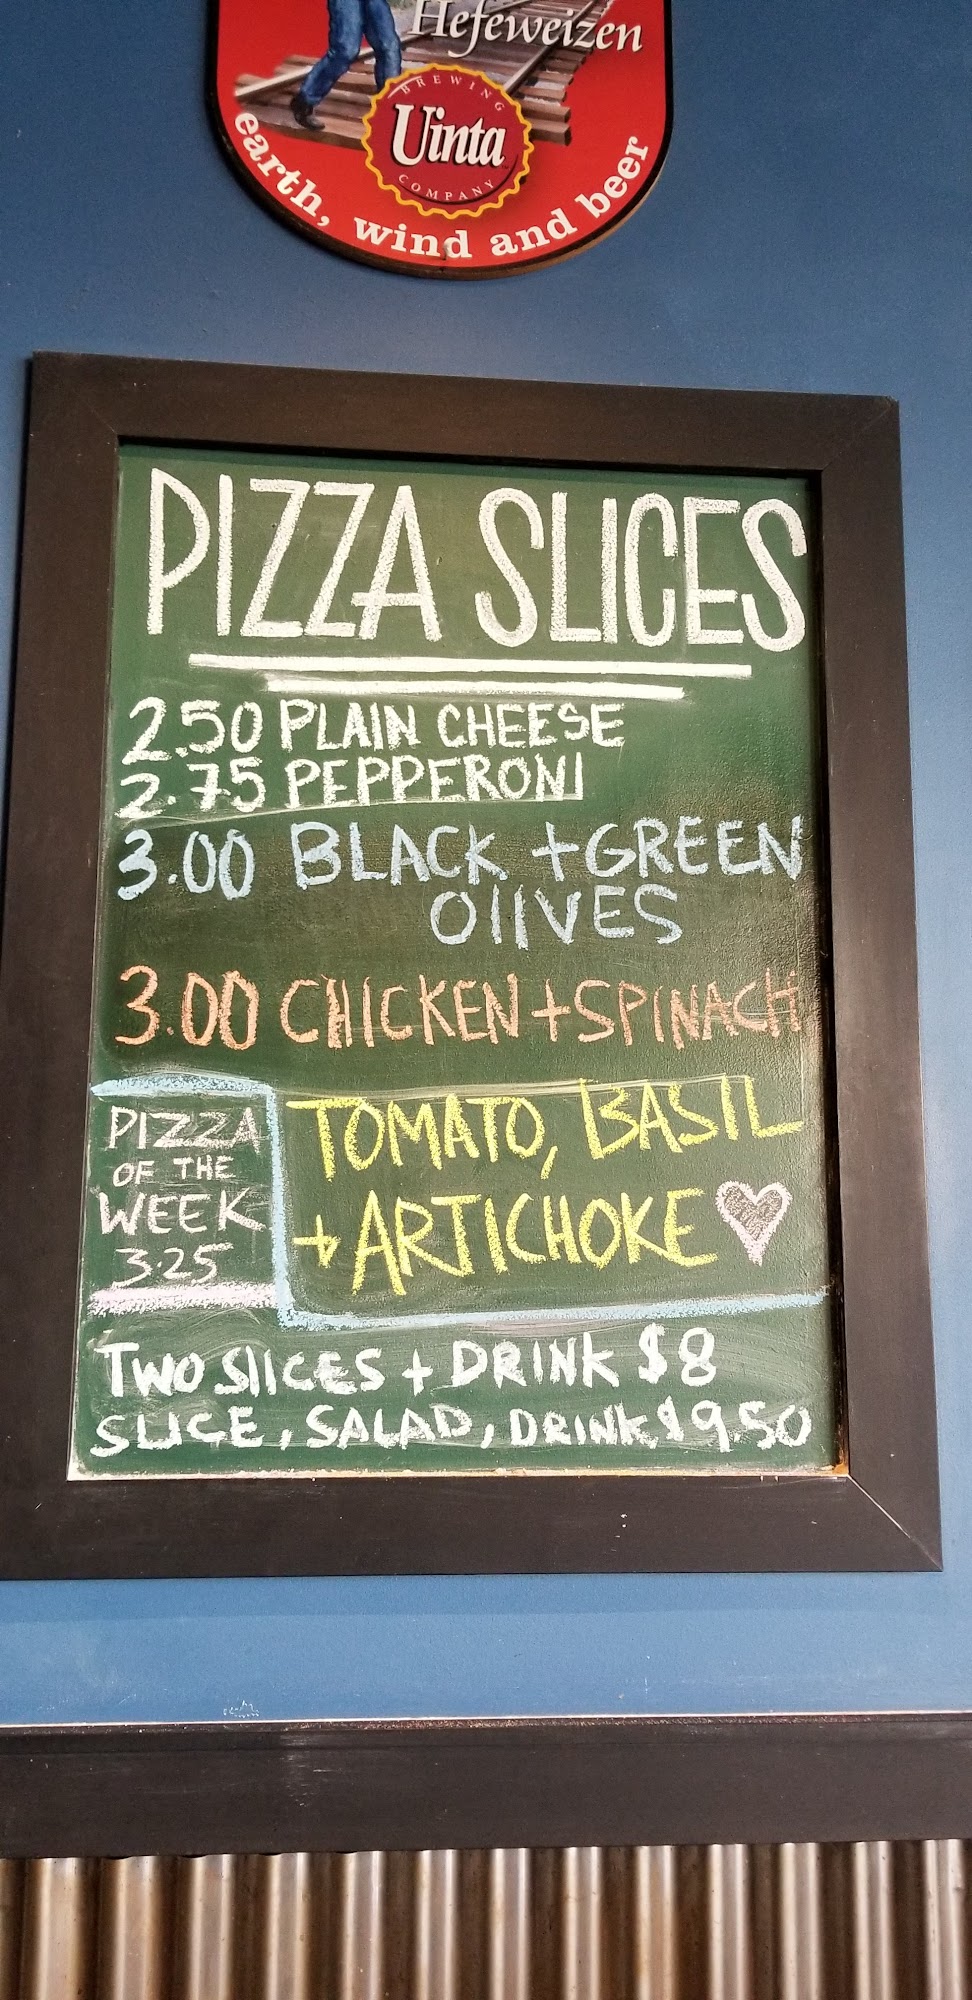 Hefeweizen
BREWING
Uinta
COMPANY
earth, wind and beer
PIZZA SLICES
2.50 PLAIN CHEESE
2.75 PEPPERONI
3.00 BLACK + GREEN
OlIVES
3.00 CHICKEN + SPINACH
PIZZA
OF THE
WEEK
3.25
TOMATO, BASIL
+ ARTICHOKE
TWO SlICES + DRINK $8
SLICE, SALAD, DRINK $9.50